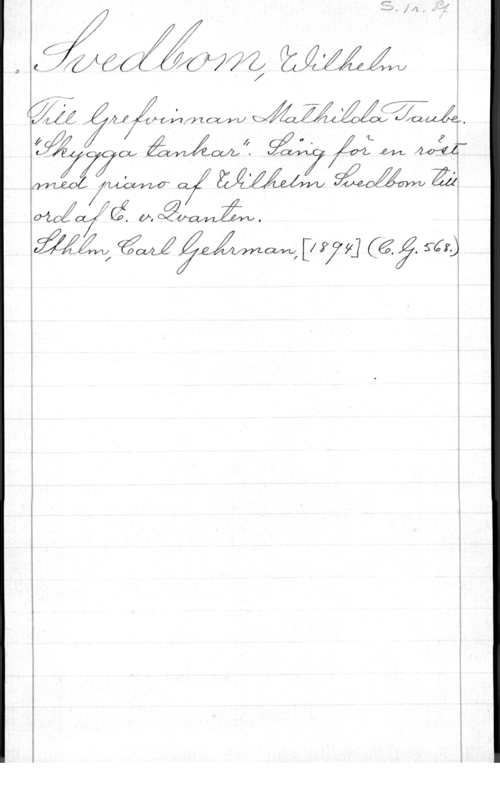 S. 1 r. Pf
Svedbom, Wilhelm
Till Grefvinnan Mathilda Taube.
"Skygga tankar". Sång för en röst
med piano af Wilhelm Svedbom till
ord af E. v. Qvanten.
Sthlm, Carl Gehrman, [1894] (C. G. 568.)